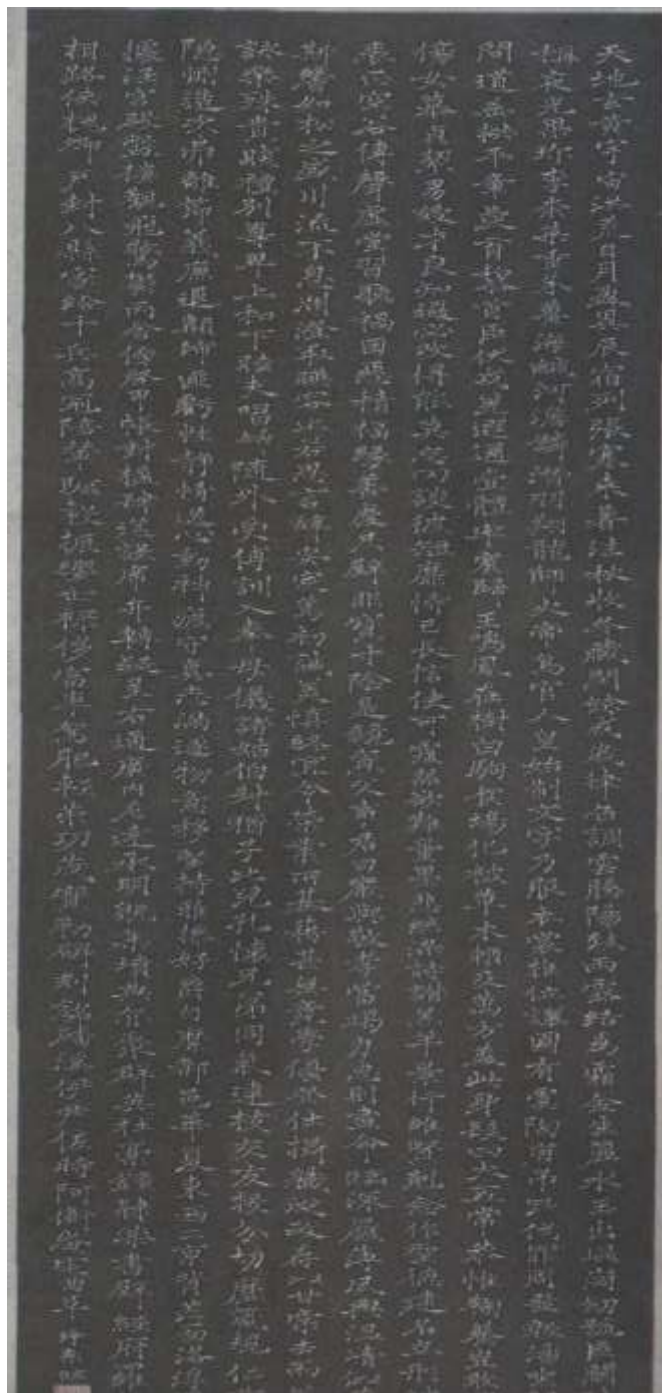 天地玄黃宇宙洪荒日月盈昃辰宿列張寒來暑往秋收冬藏閏餘成歲律呂調雲騰陽致雨露結為霜金生麗水玉出崑岡劍號巨闕
珠夜光果珍李柰菜重芥薑海鹹河淡鱗潛羽翔龍師火帝鳥官人皇始制文字乃服衣裳推位讓國有虞陶唐弔民伐罪周發殷湯坐朝
問道垂拱平章愛育黎首臣伏戎羌遐邇壹體率賓歸王鳴鳳在樹白駒食場化被草木賴及萬方蓋此身髮四大五常恭惟鞠養豈敢毀
傷女慕貞絜男效才良知過必改得能莫忘罔談彼短靡恃己長信使可覆器欲難量墨悲絲染詩讚羔羊景行維賢剋念作聖德建名立形端
表正空谷傳聲虛堂習聽禍因惡積福緣善慶尺璧非寶寸陰是競資父事君曰嚴與敬孝當竭力忠則盡命臨深履薄夙興溫凊似蘭
斯馨如松之盛川流不息淵澄取映容止若思言辭安定篤初誠美慎終宜令榮業所基籍甚無竟學優登仕攝職從政存以甘棠去而益
詠樂殊貴賤禮別尊卑上和下睦夫唱婦隨外受傅訓入奉母儀諸姑伯叔猶子比兒孔懷兄弟同氣連枝交友投分切磨箴規仁慈
隱惻造次弗離節義廉退顛沛匪虧性靜情逸心動神疲守真志滿逐物意移堅持雅操好爵自縻都邑華夏東西二京背芒面洛浮渭
據涇宮殿盤鬱樓觀飛驚丙舍傍啟甲帳對楹肆筵設席弁轉疑星右通廣內左達承明既集墳典亦聚群英杜稾鍾隸漆書壁經府羅將
相路俠槐卿戶封八縣家給千兵高冠陪輦驅轂振纓世祿侈富車駕肥輕策功茂實勒碑刻銘磻溪伊尹佐時阿衡奄宅曲阜